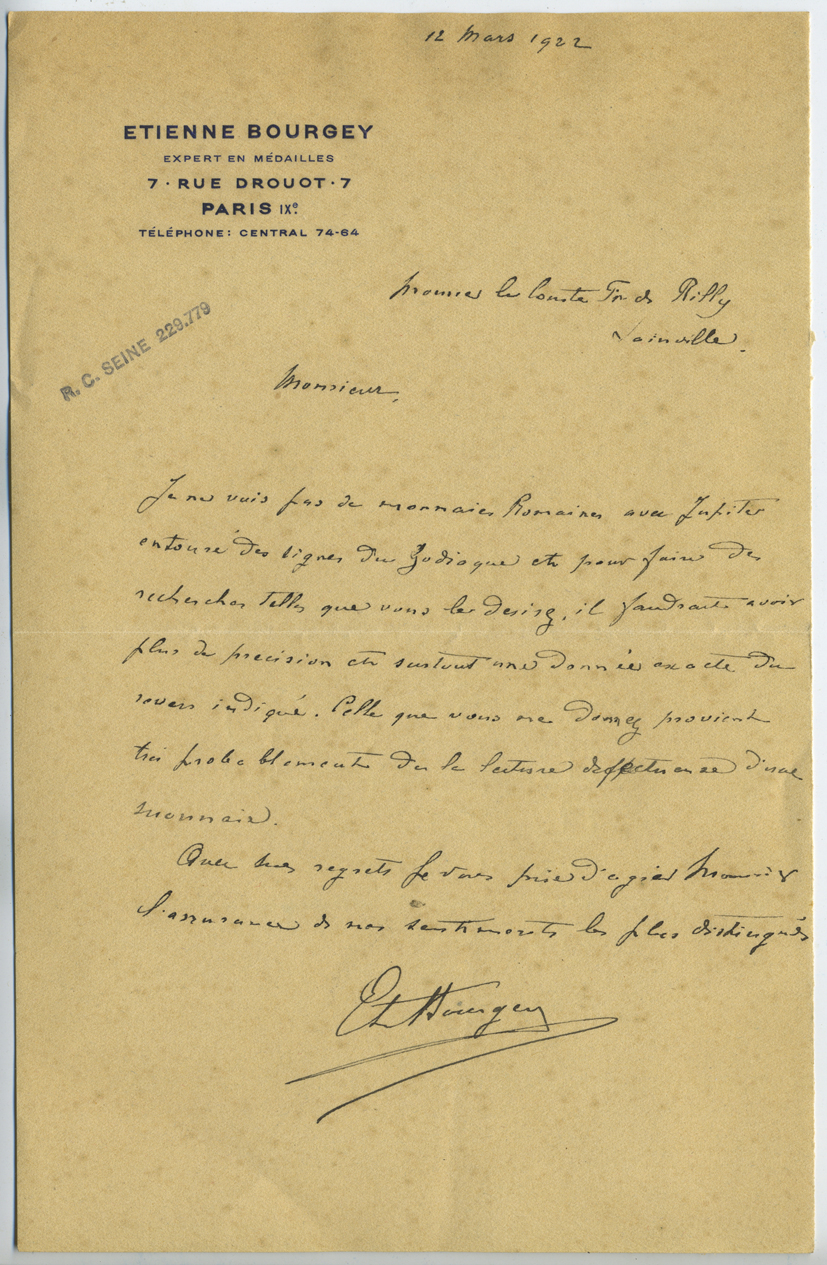 12 Mars 1922
ETIENNE BOURGEY
EXPERT EN MÉDAILLES
7 · RUE DROUOT · 7
PARIS IXe.
TÉLÉPHONE: CENTRAL 74-64
le Comte de Rilly
R. C. SEINE 229.779
Monsieur,
Je ne vois pas de monnaies Romaines avec Jupiter
entouré des signes du Zodiaque et pour faire des
recherches telles que vous les desirez, il faudrait avoir
plus de precision et surtout une donnée exacte du
revers indiqué. Celle que vous me donnez provient
très probablement de la lecture deffectueuse d'une
monnaie.
Avec mes regrets je vous prie d'agréer Monsieur
l'assurance de nos sentiments les plus distingués
Et Bourgey